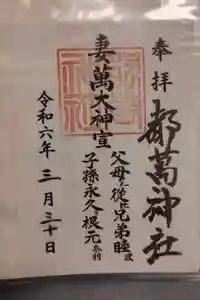 奉拝
都萬神社
妻萬大神宣
父母に従ひ兄弟睦敷
子孫永久根元
令和六年三月三十日